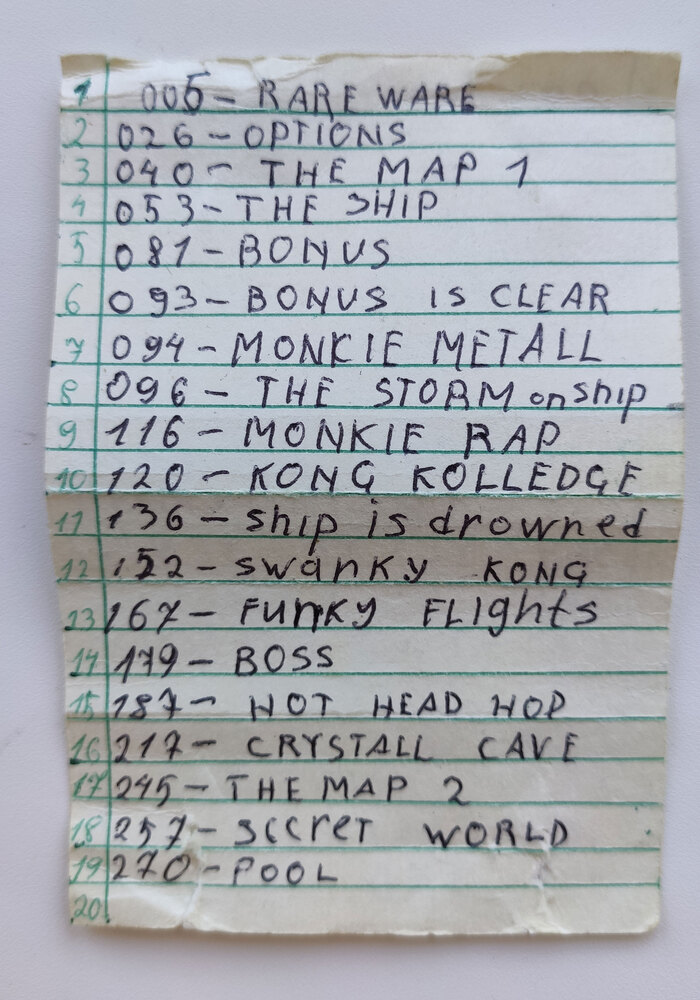 1 005 - RARE WARE
2 026 - OPTIONS
3 040 - THE MAP 1
4 053 - THE SHIP
5 081 - BONUS
6 093 - BONUS IS CLEAR
7 094 - MONKIE METALL
8 096 - THE STORM on ship
9 116 - MONKIE RAP
10 120 - KONG KOLLEDGE
11 136 - ship is drowned
12 152 - swanky KONG
13 167 - FUNKY FLIghts
14 179 - BOSS
15 187 - HOT HEAD HOP
16 217 - CRYSTALL CAVE
17 245 - THE MAP 2
18 257 - secret WORLD
19 270 - POOL
20